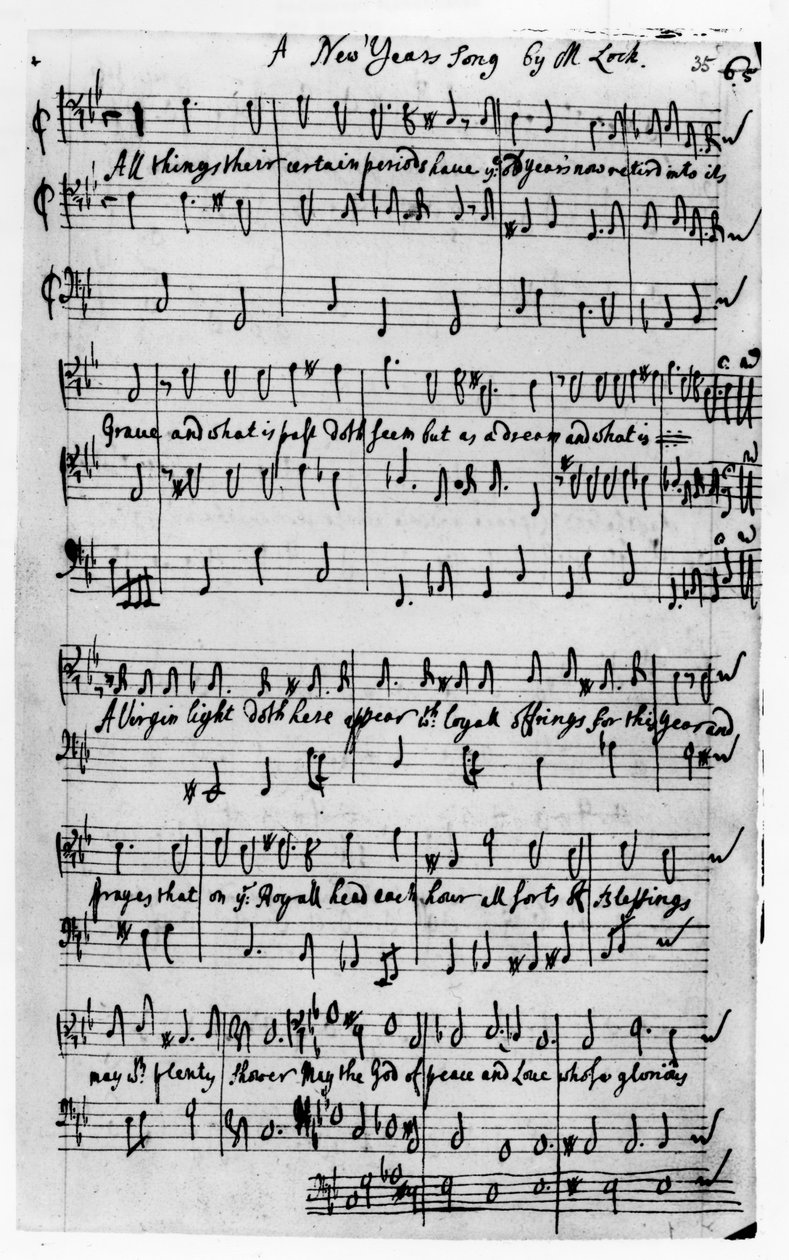 A New Years Song by M Lock. 35 65
All things their certain periods haue yᵉ old year's now retird into its
Graue and what is past doth seem but as a dream and what is
A Virgin light doth here appear wᵗʰ loyall offrings for this year and
prayes that on yʳ Royall head each hour all sorts of Blessings
may wᵗʰ plenty shower May the God of peace and Loue whose glorious